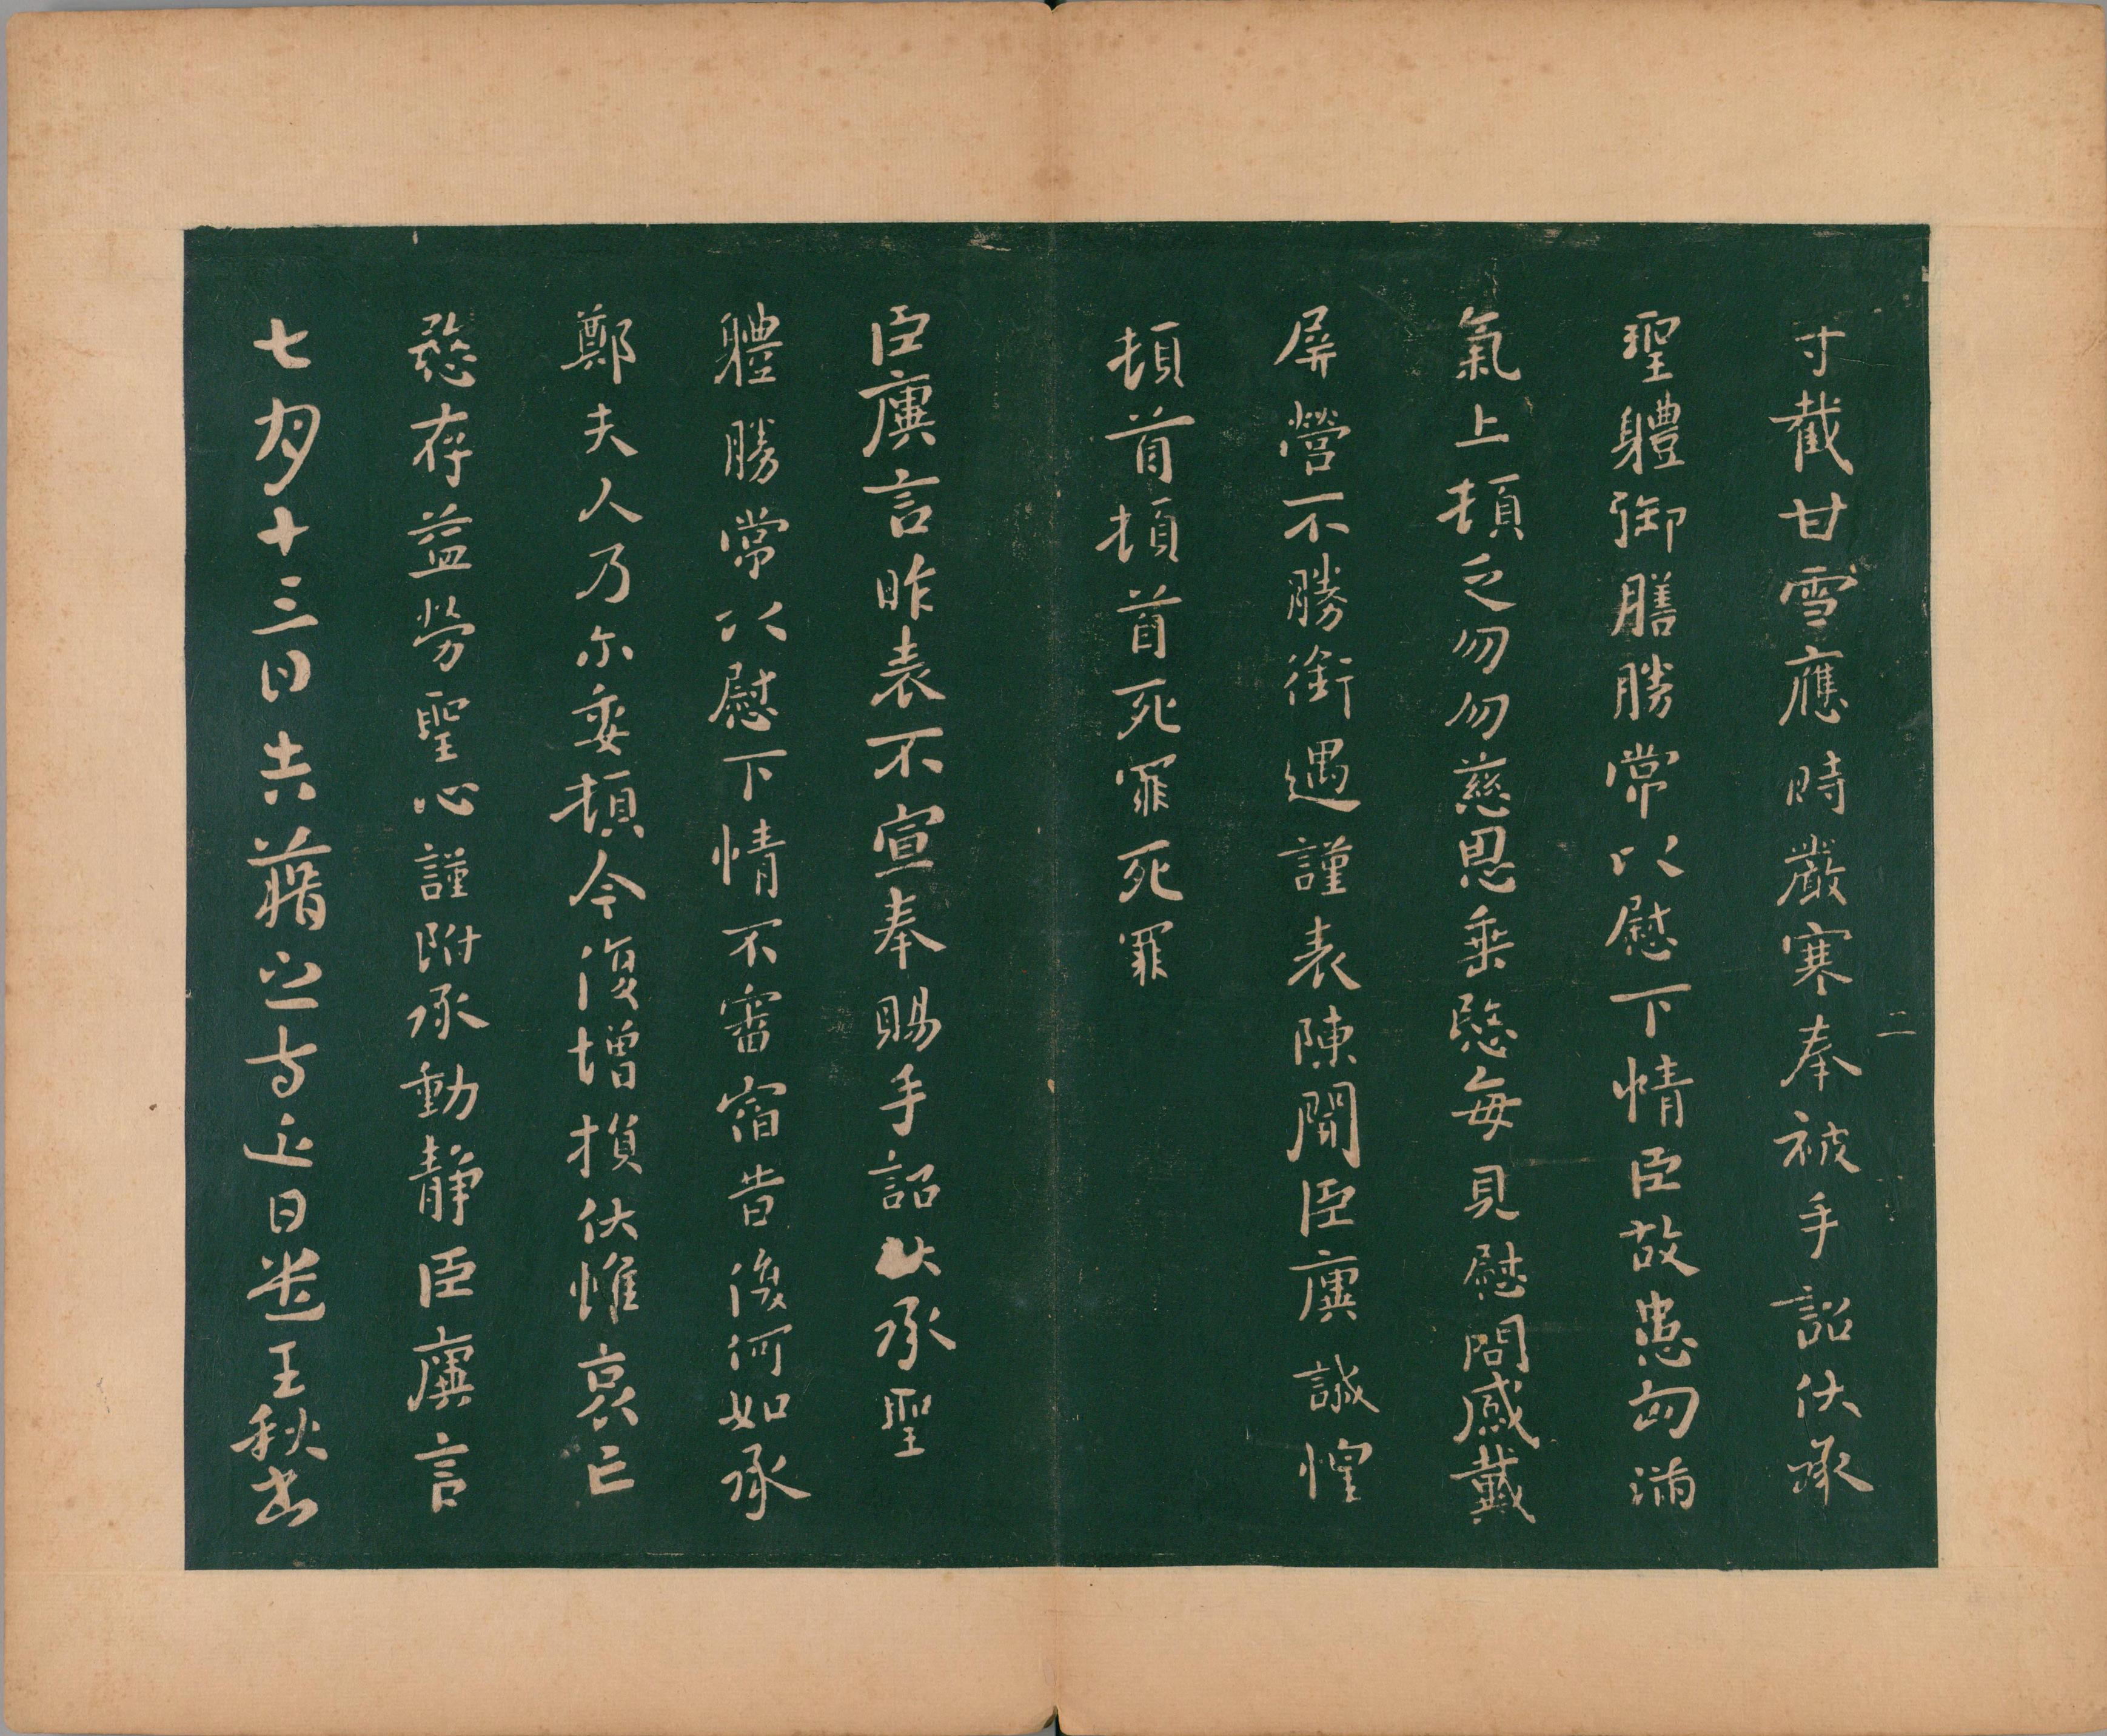 二
寸截甘雪應時嚴寒奉被手詔伏承
聖軆御膳勝常以慰下情臣故患匈滿
氣上頓乏勿勿慈恩垂愍每見慰問感戴
屏營不勝銜遇謹表陳聞臣廙誠惶
頓首頓首死罪死罪
臣廙言昨表不宣奉賜手詔伏承聖
軆勝常以慰下情不審宿昔復何如承
鄭夫人乃尓委頓今復增損伏惟哀亡
愍存益勞聖心謹附承動靜臣廙言
七月十三日告藉之等近日遣王秋書